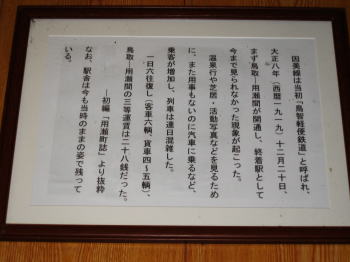 因美線は当初「鳥智軽便鉄道」と呼ばれ、
大正八年（西暦一九一九）十二月二十日、
まず鳥取―用瀬間が開通し、終着駅として
今まで見られなかった現象が起こった。
温泉行や芝居・活動写真などを見るため
に、また用事もないのに汽車に乗るなど、
乗客が増加し、列車は連日混雑した。
一日六往復し（客車六輌、貨車四〜五輌）、
鳥取―用瀬間の三等運賃は二十八銭だった。
―初編「用瀬町誌」より抜粋
なお、駅舎は今も当時のままの姿で残って
いる。